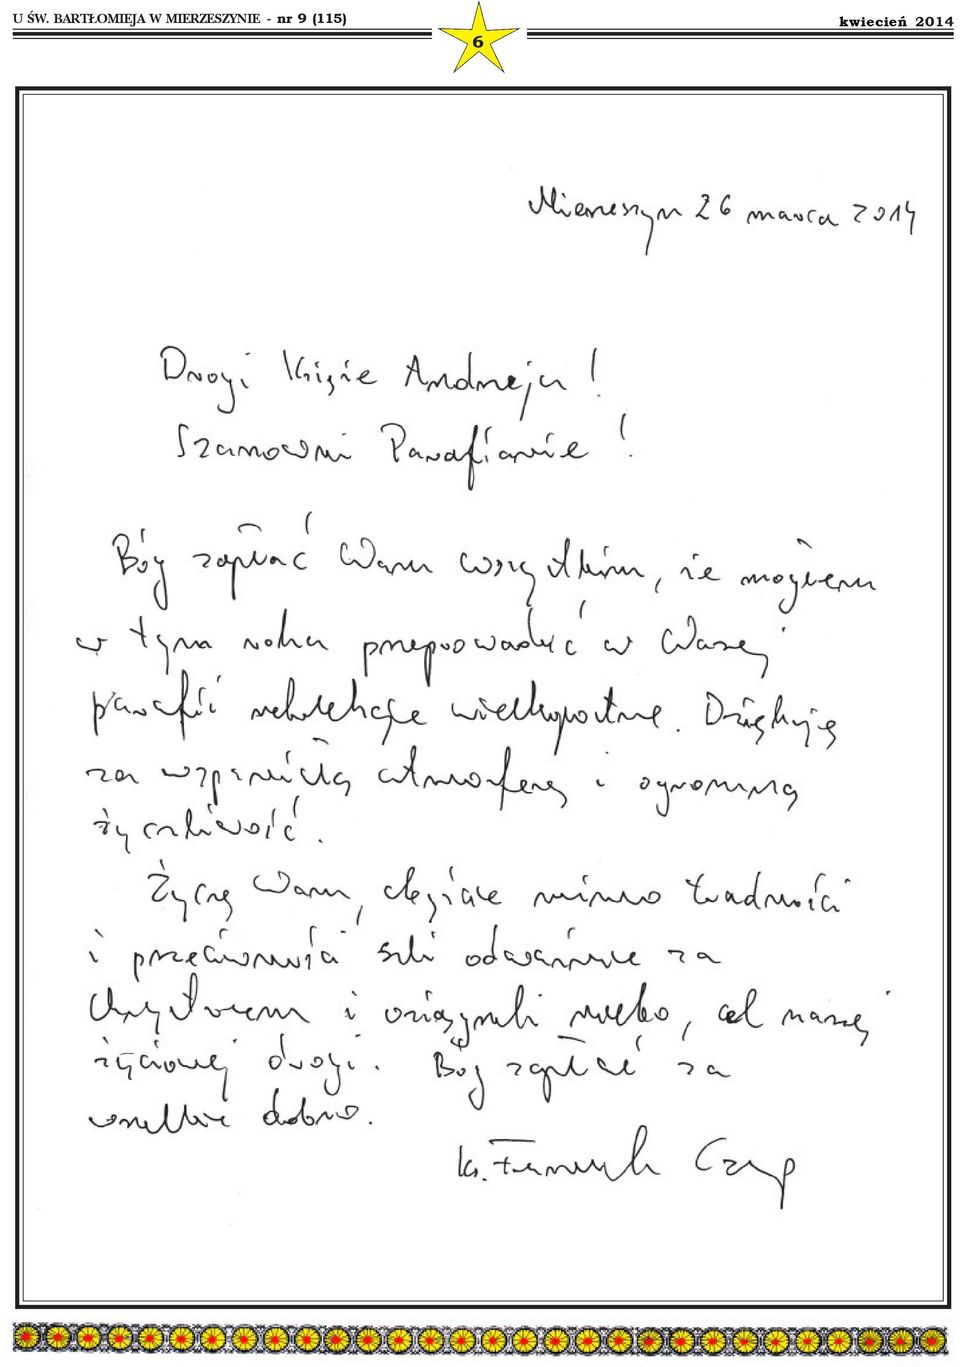 U ŚW. BARTŁOMIEJA W MIERZESZYNIE - nr 9 (115)
6
kwiecień 2014
Mierzeszyn 26 marca 2014
Drogi Księże Andrzeju!
Szanowni Parafianie!
Bóg zapłać Wam wszystkim, że mogłem
w tym roku przeprowadzić w Waszej
parafii rekolekcje wielkopostne. Dziękuję
za wspaniałą atmosferę i ogromną
życzliwość.
Życzę Wam, abyście mimo trudności
i przeciwności szli odważnie za
Chrystusem i osiągnęli niebo, cel naszej
życiowej drogi. Bóg zapłać za
wszelkie dobro.
ks. Czup